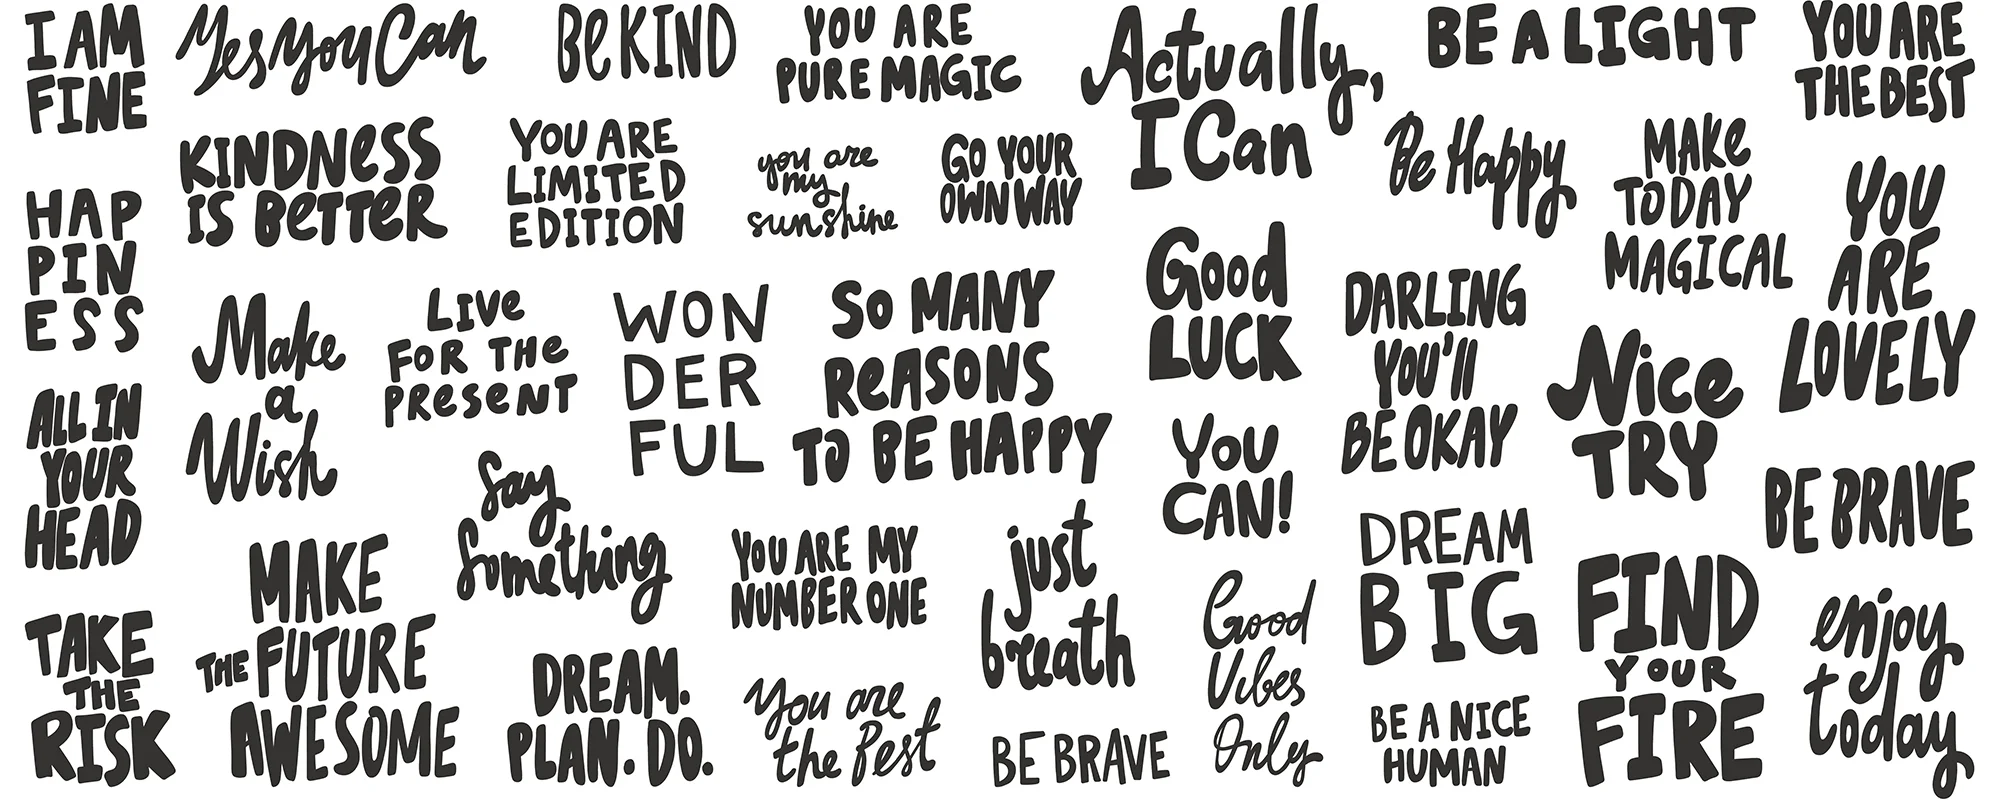 I AM
FINE
Yes you Can
Be KIND
YOU ARE
PURE MAGIC
Actually,
I Can
BE A LIGHT
YOU ARE
THE BEST
KINDNeSS
IS BeTTeR
YOU ARE
LIMITED
EDITION
you are
my
sunshine
GO YOUR
OWN WAY
Be Happy
MAKe
TODAY
MAGICAL
YOU
ARE
LOVELY
HAP
PIN
ESS
Make
a
Wish
LIVe
FOR THe
PReSeNT
WON
DER
FUL
SO MANY
ReASONS
TO BE HAPPY
Good
LUCK
DARLING
YOU'll
BE OKAY
Nice
TRY
ALL IN
YOUR
HEAD
Say
Something
YOU ARE MY
NUMBER ONE
just
breath
YOU
CAN!
DREAM
BIG
BE BRAVE
TAKE
THE
RISK
MAKE
THE FUTURE
AWESOME
DREAM.
PLAN. DO.
You are
the Best
BE BRAVE
Good
Vibes
Only
BE A NICE
HUMAN
FIND
YOUR
FIRE
enjoy
today